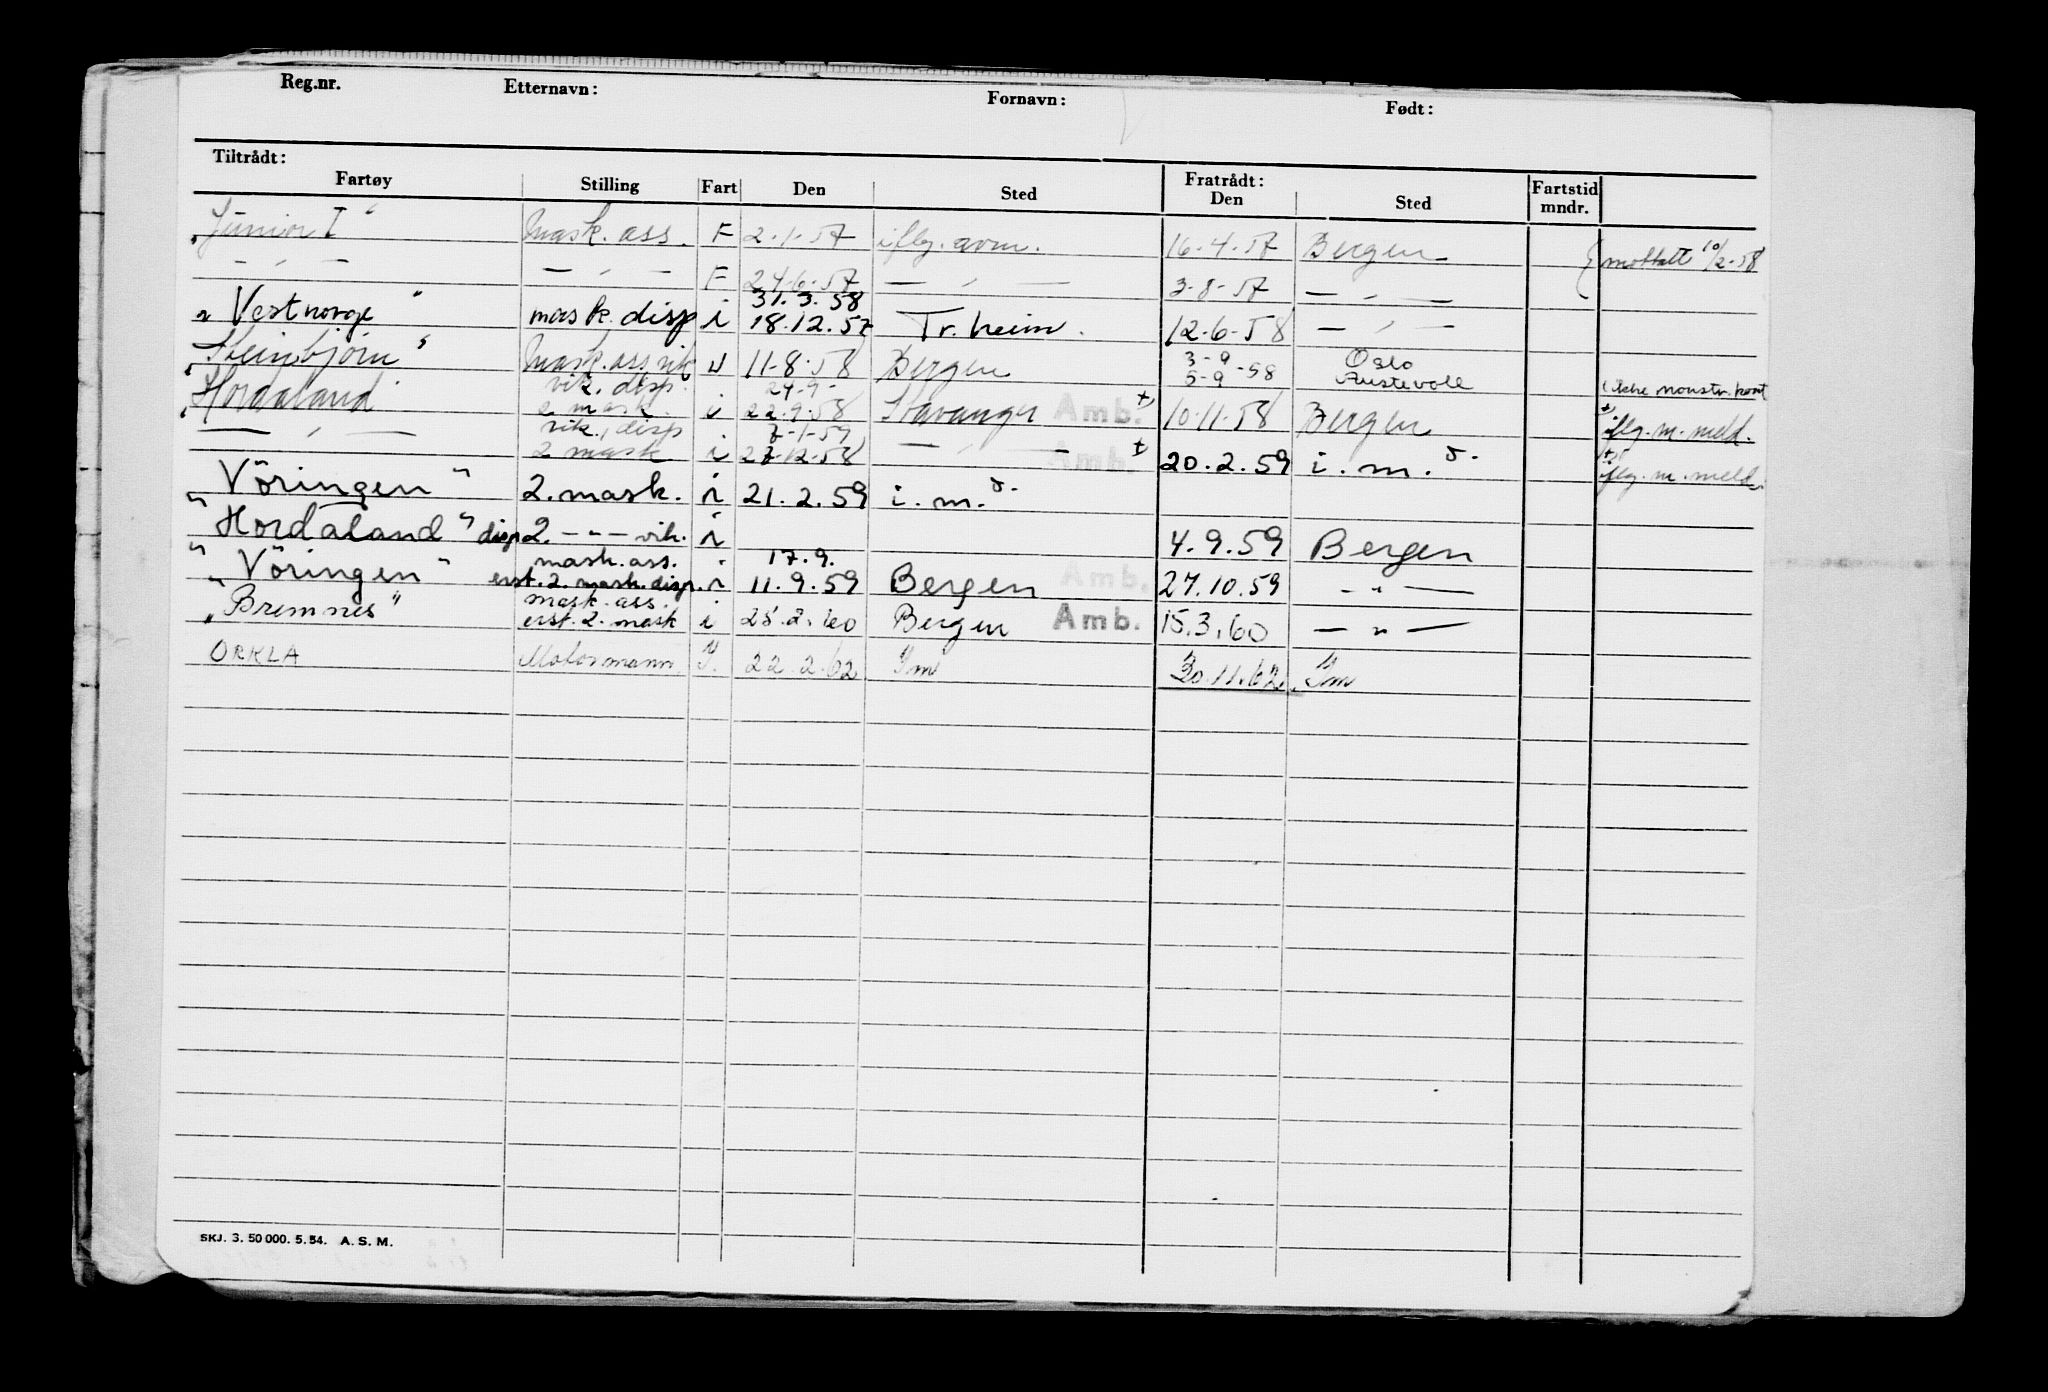 Reg.nr. Etternavn: Fornavn: Født:
Tiltrådt: Fratrådt:
Fartøy Stilling Fart Den Sted Den Sted Fartstid mndr.
"Junior I" Mask. ass. F 2-1-57 iflg. avm. 16-4-57 Bergen { mottatt 10/2-58
— " — — " — F 24-6-57 — " — 3-8-57 — " —
31.3.58
"Vestnorge" mask. disp i 18.12.57 Tr.heim. 12-6-58 — " —
3-9 Oslo
"Steinbjørn" Mask. ass. vik u 11-8-58 Bergen 5-9-58 Austevoll
vik. disp. 24-9- ikke mønstr. kort
"Hordaland 2 mask. i 22-9-58 Stavanger Amb. +) 10-11-58 Bergen +) iflg. m. meld.
vik., disp 7-1-59
— " — 2 mask i 27-12-58 — " — Amb. + 20.2.59 i.m. +) iflg. m. meld.
"Vöringen" 2. mask. i 21.2.59 i.m.
"Hordaland" disp 2. — " — vik. i 4.9.59 Bergen
mask. ass. 17.9.
"Vöringen" erst. 2. mask. disp. i 11.9.59 Bergen Amb. 27.10.59 — " —
mask. ass.
"Bremnes" erst. 2. mask i 25.2.60 Bergen Amb. 15.3.60 — " —
ORKLA Motormann I. 22.2.62 Im 30.11.62. Im
SKJ. 3. 50 000. 5. 54. A. S. M.